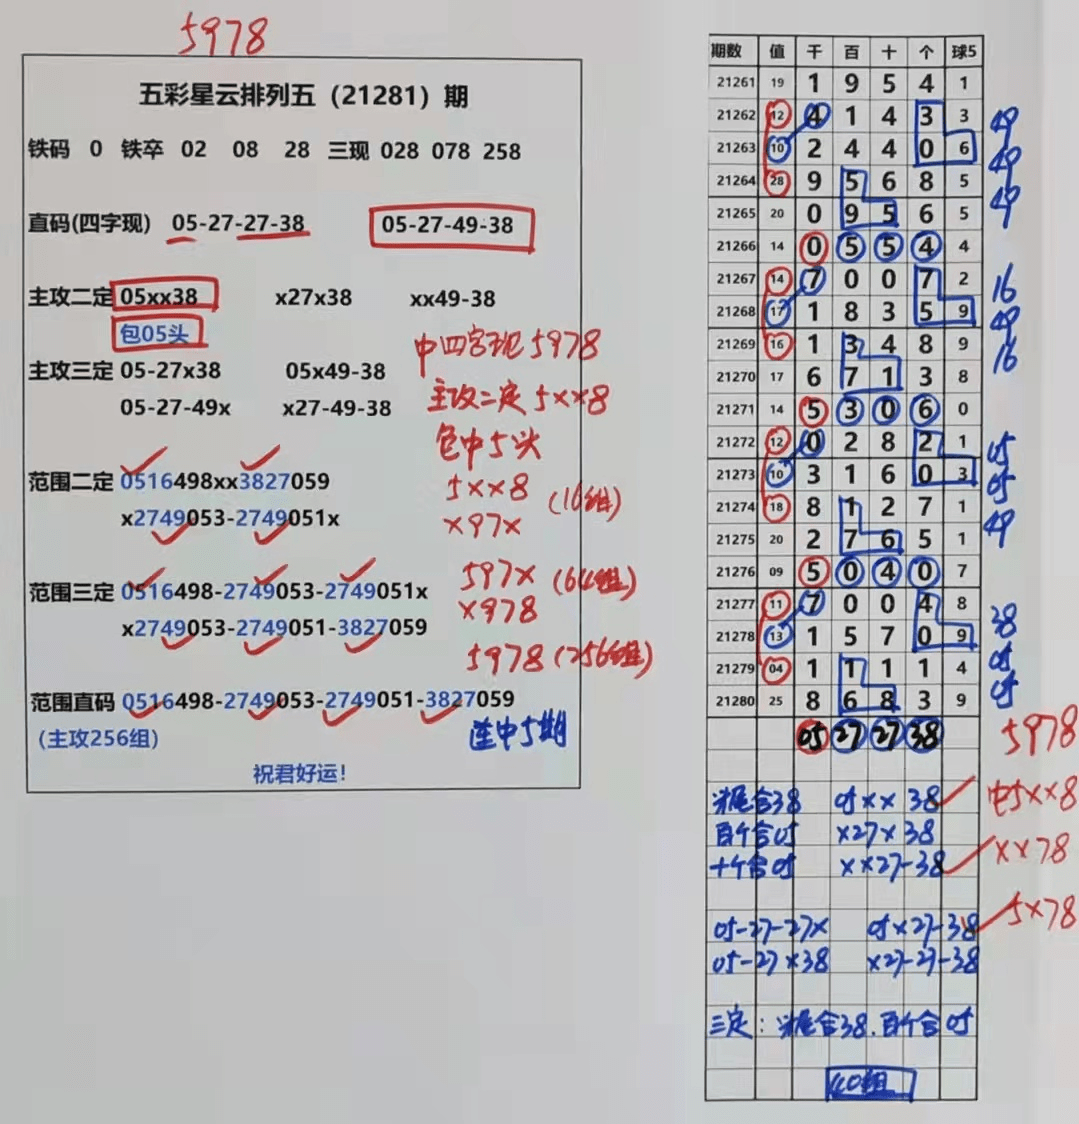 5978
五彩星云排列五（21281）期
铁码 0 铁卒 02 08 28 三现 028 078 258
直码(四字现) 05-27-27-38 05-27-49-38
主攻二定 05xx38 x27x38 xx49-38
包05头
主攻三定 05-27x38 05x49-38
05-27-49x x27-49-38
中四字现5978
主攻二定5××8
包中5头
范围二定 0516498xx3827059
x2749053-2749051x
5××8 (16组)
×97×
范围三定 0516498-2749053-2749051x
x2749053-2749051-3827059
597× (64组)
×978
5978 (256组)
范围直码 0516498-2749053-2749051-3827059
(主攻256组)
连中5期
祝君好运！
期数 值 千 百 十 个 球5
21261 19 1 9 5 4 1
21262 12 4 1 4 3 3 49
21263 10 2 4 4 0 6 49
21264 28 9 5 6 8 5 49
21265 20 0 9 5 6 5
21266 14 0 5 5 4 4
21267 14 7 0 0 7 2 16
21268 17 1 8 3 5 9 49
21269 16 1 3 4 8 9 16
21270 17 6 7 1 3 8
21271 14 5 3 0 6 0
21272 12 0 2 8 2 1 05
21273 10 3 1 6 0 3 05
21274 18 8 1 2 7 1 49
21275 20 2 7 6 5 1
21276 09 5 0 4 0 7
21277 11 7 0 0 4 8 38
21278 13 1 5 7 0 9 05
21279 04 1 1 1 1 4 05
21280 25 8 6 8 3 9
05 27 27 38 5978
头尾合38 05×× 38 中5××8
百个合05 ×27×38
十个合05 ××27-38 ××78
05-27-27× 05×27-38 5×78
05-27×38 ×27-27-38
三定：头尾合38.百个合05
40组